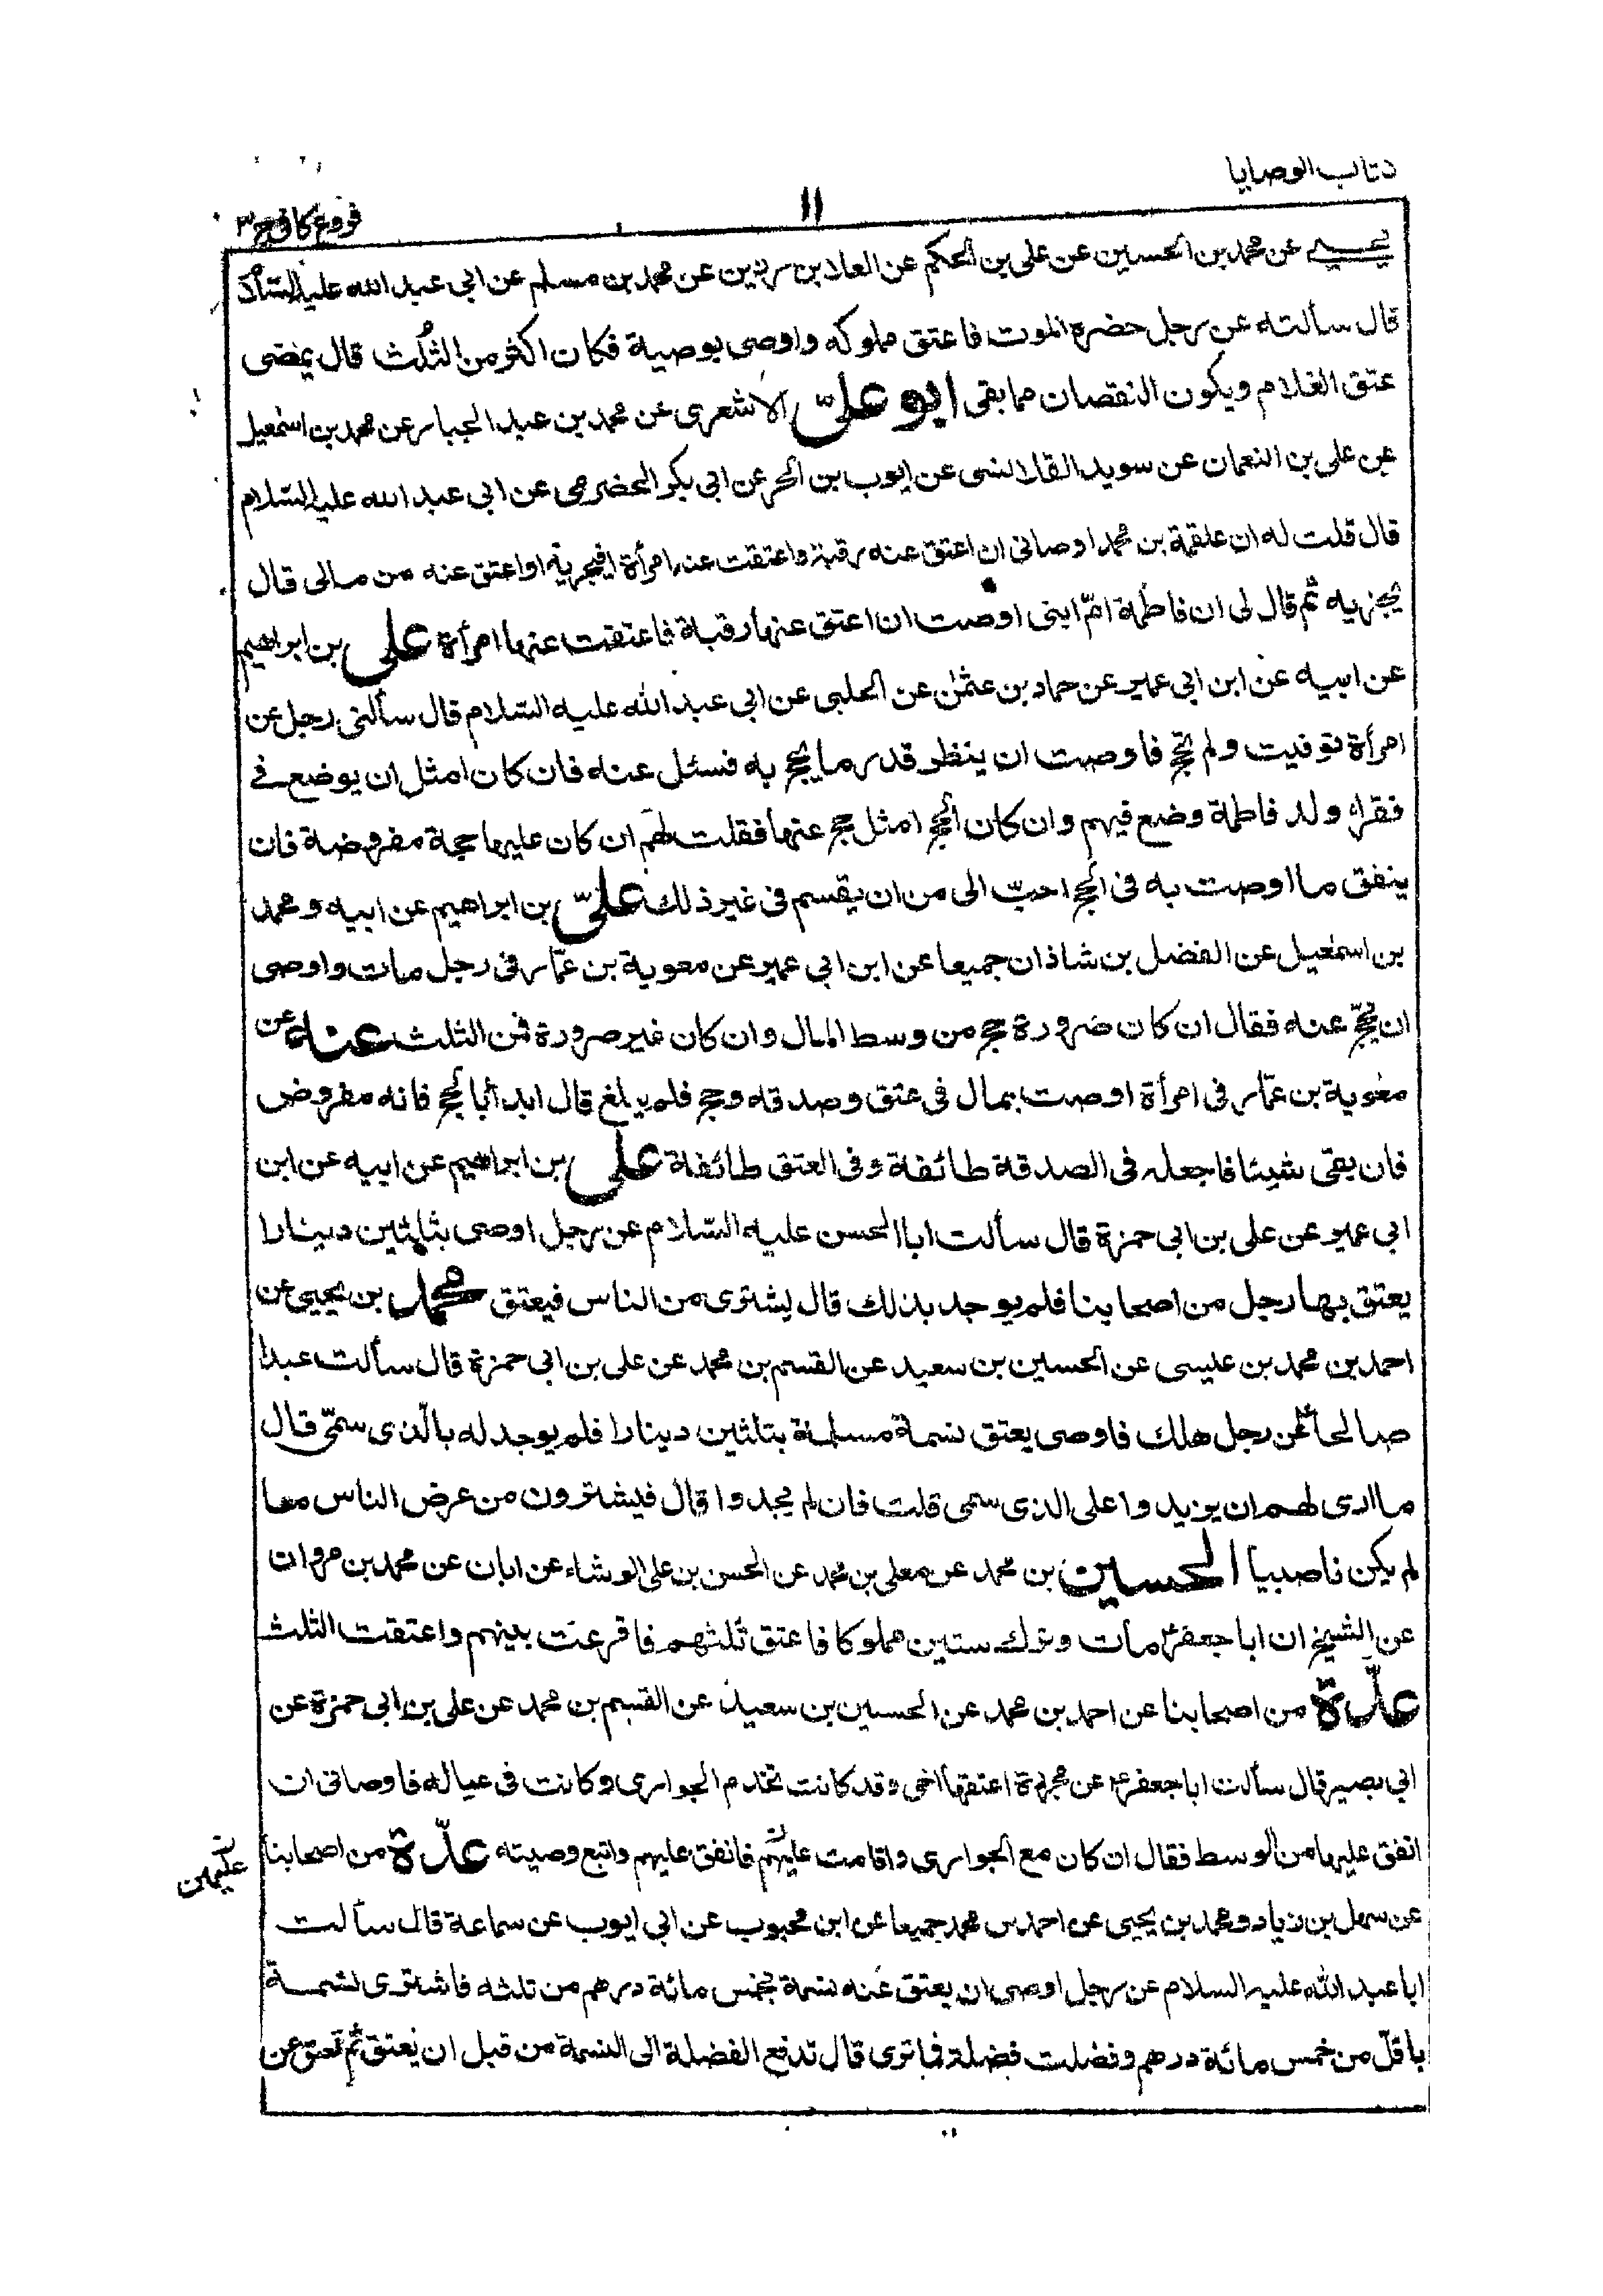 كتاب الوصايا
١١
فروع كافي ج ٣
يحيى عن محمد بن الحسين عن علي بن الحكم عن العلا بن رزين عن محمد بن مسلم عن ابي عبد الله عليه السلام
قال سألته عن رجل حضره الموت فاعتق مملوكه واوصى بوصية فكان اكثر من الثلث قال يمضى
عتق الغلام ويكون النقصان مما بقى ابو علىّ الاشعرى عن محمد بن عبد الجبار عن محمد بن اسمعيل
عن على بن النعمان عن سويد القلانسى عن ايوب بن الحر عن ابي بكر الحضرمى عن ابي عبد الله عليه السلام
قال قلت له ان علقمة بن محمد اوصانى ان اعتق عنه رقبة واعتقت عنه امرأة افيجزيه او اعتق عنه من مالى قال
يجزيه ثم قال لى ان فاطمة امّ ابنى اوصت ان اعتق عنها رقبة فاعتقت عنها امرأة على بن ابراهيم
عن ابيه عن ابن ابي عمير عن حماد بن عثمن عن الحلبى عن ابي عبد الله عليه السلام قال سألنى رجل عن
امرأة توفيت ولم تحج فاوصت ان ينظر قدر ما يحج به فسئل عنه فان كان امثل ان يوضع في
فقراء ولد فاطمة وضع فيهم وان كان الحج امثل حج عنها فقلت لهم ان كان عليها حجة مفروضة فان
ينفق ما اوصت به فى الحج احبّ الى من ان يقسم فى غير ذلك علىّ بن ابراهيم عن ابيه و محمد
بن اسمعيل عن الفضل بن شاذان جميعا عن ابن ابي عمير عن معوية بن عمّار فى رجل مات واوصى
ان يحجّ عنه فقال ان كان ضرورة حج من وسط المال وان كان غير صرورة فمن الثلث عنه عن
معوية بن عمّار فى امرأة اوصت بمال فى عتق وصدقه وحج فلم يبلغ قال ابدأ بالحج فانه مفروض
فان بقى شيئا فاجعله فى الصدقة طائفة وفى العتق طائفة على بن ابراهيم عن ابيه عن ابن
ابي عمير عن على بن ابي حمزة قال سألت ابا الحسن عليه السلام عن رجل اوصى بثلثين دينارا
يعتق بها رجل من اصحابنا فلم يوجد بذلك قال يشترى من الناس فيعتق محمد بن يحيى عن
احمد بن محمد بن عيسى عن الحسين بن سعيد عن القسم بن محمد عن على بن ابي حمزة قال سألت عبدا
صالحا ع عن رجل هلك فاوصى يعتق نسمة مسلمة بثلثين دينارا فلم يوجد له بالّذى سمّى قال
ما ارى لهم ان يزيدوا على الذى سمى قلت فان لم يجدوا قال فيشترون من عرض الناس ما
لم يكن ناصبيا الحسين بن محمد عن معلى بن محمد عن الحسن بن على الوشاء عن ابان عن محمد بن مروان
عن الشيخ ان ابا جعفر ع مات وترك ستين مملوكا فاعتق ثلثهم فاقرعت بينهم واعتقت الثلث
عدّة من اصحابنا عن احمد بن محمد عن الحسين بن سعيد عن القسم بن محمد عن على بن ابي حمزة عن
ابي بصير قال سألت ابا جعفر ع عن محررة اعتقها اخى وقد كانت تخدم الجوارى وكانت فى عياله فاوصانى ان
انفق عليها من الوسط فقال ان كان مع الجوارى واقامت عليهم فانفق عليهم واتبع وصيته عدّة من اصحابنا
عليهن
عن سهل بن زياد و محمد بن يحيى عن احمد بن محمد جميعا عن ابن محبوب عن ابي ايوب عن سماعة قال سألت
ابا عبد الله عليه السلام عن رجل اوصى ان يعتق عنه نسمة بخمس مائة درهم من ثلثه فاشترى نسمة
باقلّ من خمس مائة درهم وفضلت فضلة فما ترى قال تدفع الفضلة الى النسمة من قبل ان يعتق ثم تعتق عن